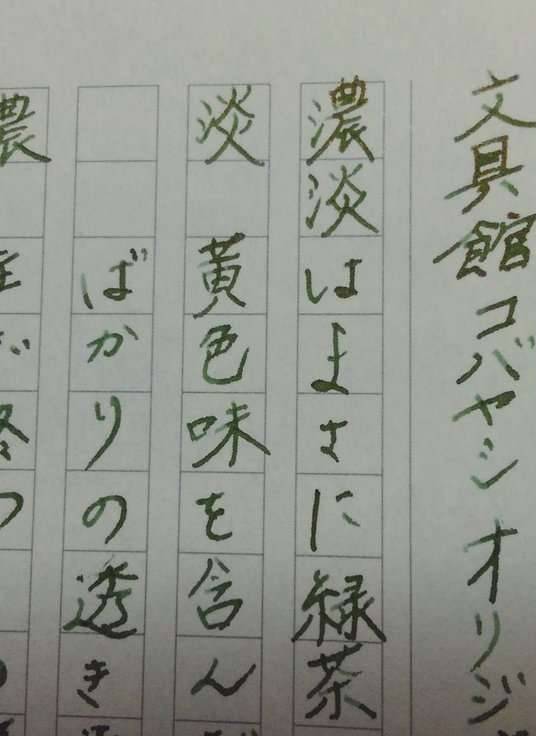 文具館コバヤシオリジ
濃淡はまさに緑茶
淡 黄色味を含ん
ばかりの透き
濃